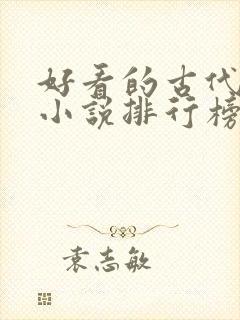 好看的古代
小说排行榜
袁志敏